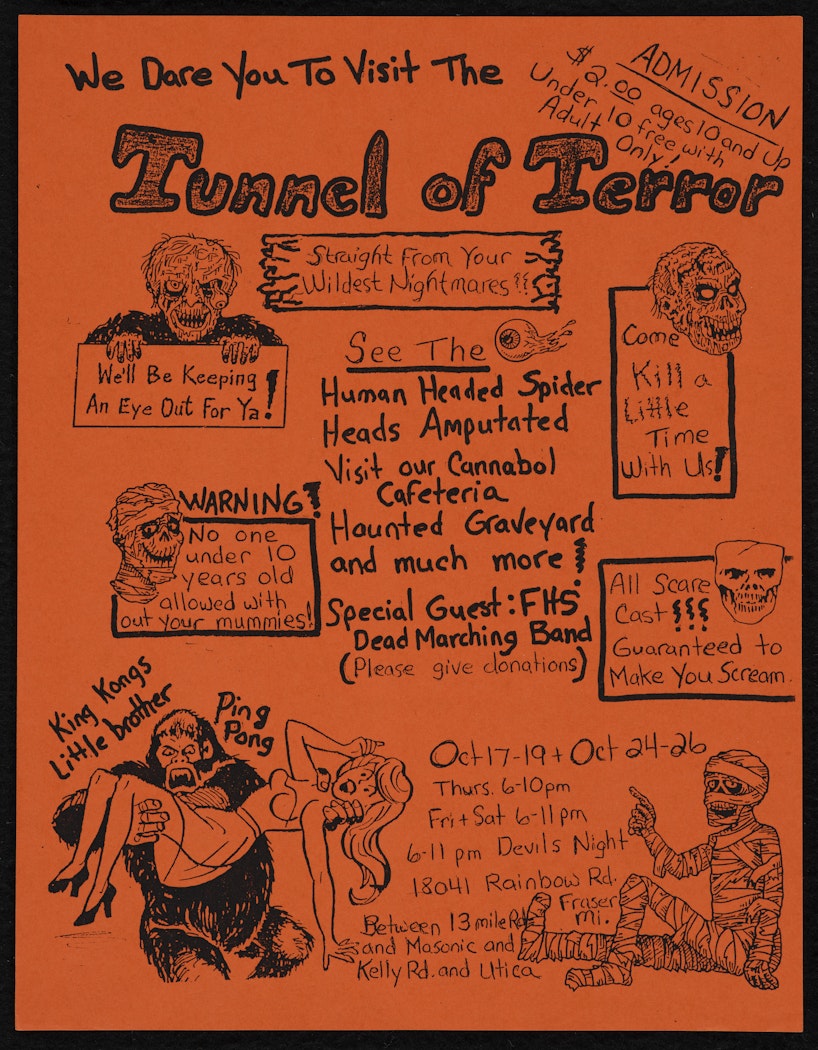 We Dare You To Visit The
ADMISSION
$2.00 ages 10 and Up
Under 10 free with
Adult Only!
Tunnel of Terror
Straight From Your
Wildest Nightmares!!
We'll Be Keeping
An Eye Out For Ya!
See The
Human Headed Spider
Heads Amputated
Visit our Cannabol
Cafeteria
Haunted Graveyard
and much more!
Special Guest: FHS
Dead Marching Band
(Please give donations)
Come
Kill a
Little
Time
With Us!
WARNING!
No one
under 10
years old
allowed with
out your mummies!
All Scare
Cast!!!
Guaranteed to
Make You Scream.
King Kongs
Little brother
Ping
Pong
Oct 17-19 + Oct 24-26
Thurs. 6-10pm
Fri + Sat 6-11pm
6-11 pm Devils Night
18041 Rainbow Rd.
Fraser
Mi.
Between 13 mile Rd.
and Masonic and
Kelly Rd. and Utica